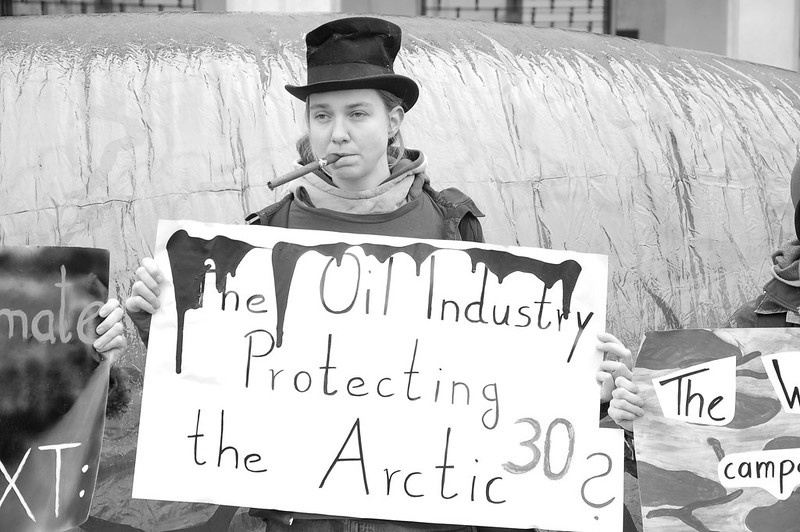 mate
XT:
The Oil Industry
Protecting
the Arctic 30?
The W
campa